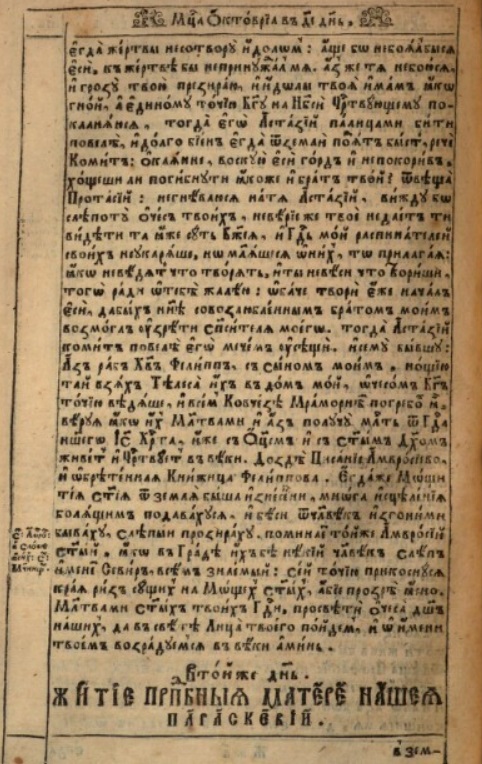 Мц҃а Ѻктѡврїа въ д҃і де́нь,
є҆гда̀ же́ртвы несотворꙋ̀ и҆́долѡм: а҆́ще бы небоѧ́лбысѧ
є҆сѝ, къже́ртвѣ бы непринꙋжда́л мѧ. а҆́з же тѧ небою́сѧ,
и҆ грозꙋ̀ твою̀ презира́ю, и҆ і҆́дѡлы твоѧ̀ и҆́мамъ ꙗ҆́кѡ
гно́й, а҆ є҆ди́номꙋ то́чїю Бг҃ꙋ на Нб҃сѝ Црⷭ҇твꙋющемꙋ по-
кланѧ́юсѧ, тогда̀ є҆гѡ̀ Аста́зїй па́лицами би́ти
повелѣ̀, и҆до́лго бїе́нъ є҆гда̀ ѿземлѝ по́ѧт бы́ст, речѐ
Коми́тъ: Ѻ҆каѧ́нне, воскꙋ́ю є҆сѝ го́рдъ и҆ непокори́въ,
хо́щеши ли поги́бнꙋти ꙗ҆́коже и҆ бра́тъ тво́й; ѿвѣща̀
Прота́сїй: негнѣ́ваюсѧ на́тѧ Аста́зїй, ви́ждꙋ бо
слѣпотꙋ̀ ѻ҆че́съ твои́хъ, невѣ́рїе же твоѐ неда́стъ ти
ви́дѣти та ꙗ҆̀же сꙋ́ть Бж҃їѧ, и҆ Гдⷭ҇ь мо́й распина́телей
свои́хъ неꙋкарѧ́ше, но̀ молѧ́шесѧ ѡ҆ни́хъ, то̀ прилага́ѧ:
ꙗ҆́кѡ невѣ́дѧт что творѧ́тъ, и҆ ты̀ невѣ́си что твори́ши,
тогѡ̀ ра́ди ѡ҆тебѣ̀ жалѣ́ю: ѻ҆ба́че творѝ є҆́же нача́лъ
є҆сѝ, дабы́хъ ны́нѣ совозлю́бленнымъ бра́том мои́мъ
возмо́глъ ᲂу҆зрѣ́ти Сп҃си́телѧ моегѡ̀. тогда̀ Аста́зїй
коми́тъ повелѣ̀ є҆гѡ̀ мече́мъ ᲂу҆сѣщѝ. и҆семꙋ̀ бы́вшꙋ:
А҆́зъ ра́бъ Хв҃ъ Фили́ппъ, съсы́номъ мои́мъ, но́щїю
та́й взѧ́хъ Тѣлеса̀ и҆́хъ въдо́мъ мо́й, ѡ҆чесо́мъ Бг҃ъ
то́чїю вѣ́дѧше, и҆ всѣ́м Ковче́зѣ Мра́морнѣ погребо́х и҆̀,
вѣ́рꙋѧ ꙗ҆́кѡ и҆́хъ Мл҃твами и҆ а҆́зъ полꙋчꙋ̀ млⷭ҇ть ѿ Гдⷭ҇а
на́шегѡ І҆с҃ Хрⷭ҇та̀, и҆́же съ Оц҃емъ и҆ съ ст҃ымъ Дх҃омъ
живе́т и҆ Црⷭ҇твꙋетъ въвѣ́ки. До́здѣ Писа́нїе А҆мвро́сїево,
и҆ ѡ҆брѣ́тенна̀ѧ Кни́жица Фили́ппова. Є҆гда́же Мо́щи
тїѧ̀ Ст҃ы́ѧ ѿ земли̑ бы́ша и҆знесе́ни, мнѡ́га и҆сцѣле́нїѧ
болѧ́щымъ подава́хꙋсѧ, и҆ бѣ́си ѿчл҃вѣ́къ и҆згони́ми
быва́хꙋ, слѣпы́и прозира́хꙋ. помина́етто́йже А҆мвро́сїй
Ст҃ы́й, ꙗ҆́кѡ въ Гра́дѣ и҆́хъ бѣ̀ нѣ́кїй чл҃вѣ́къ слѣ́пъ
и҆́менем Севи́ръ, всѣ́мъ зна́емый: се́й то́чїю прикоснꙋ́сѧ
кра́ѧ ри́зъ сꙋ́щихъ на Мо́щех ст҃ы́хъ, а҆́бїе прозрѣ̀ ꙗ҆́сно.
Мл҃твами ст҃ы́хъ твои́хъ Гдⷭ҇и, просвѣтѝ ѻ҆чеса̀ дш҃ъ
на́шихъ, да въ свѣ́тѣ Лица̀ твоегѡ̀ по́йдемъ, и҆ ѡ҆ и҆́мени
твое́мъ возра́дꙋемсѧ въ вѣ́ки а҆ми́нь.
Вто́йже де́нь.
ЖИТІЕ ПРПⷣБНЫЯ МАТЕРЕ НАШЕЯ
ПАРАСКЕѴІИ.
в̾ зем-